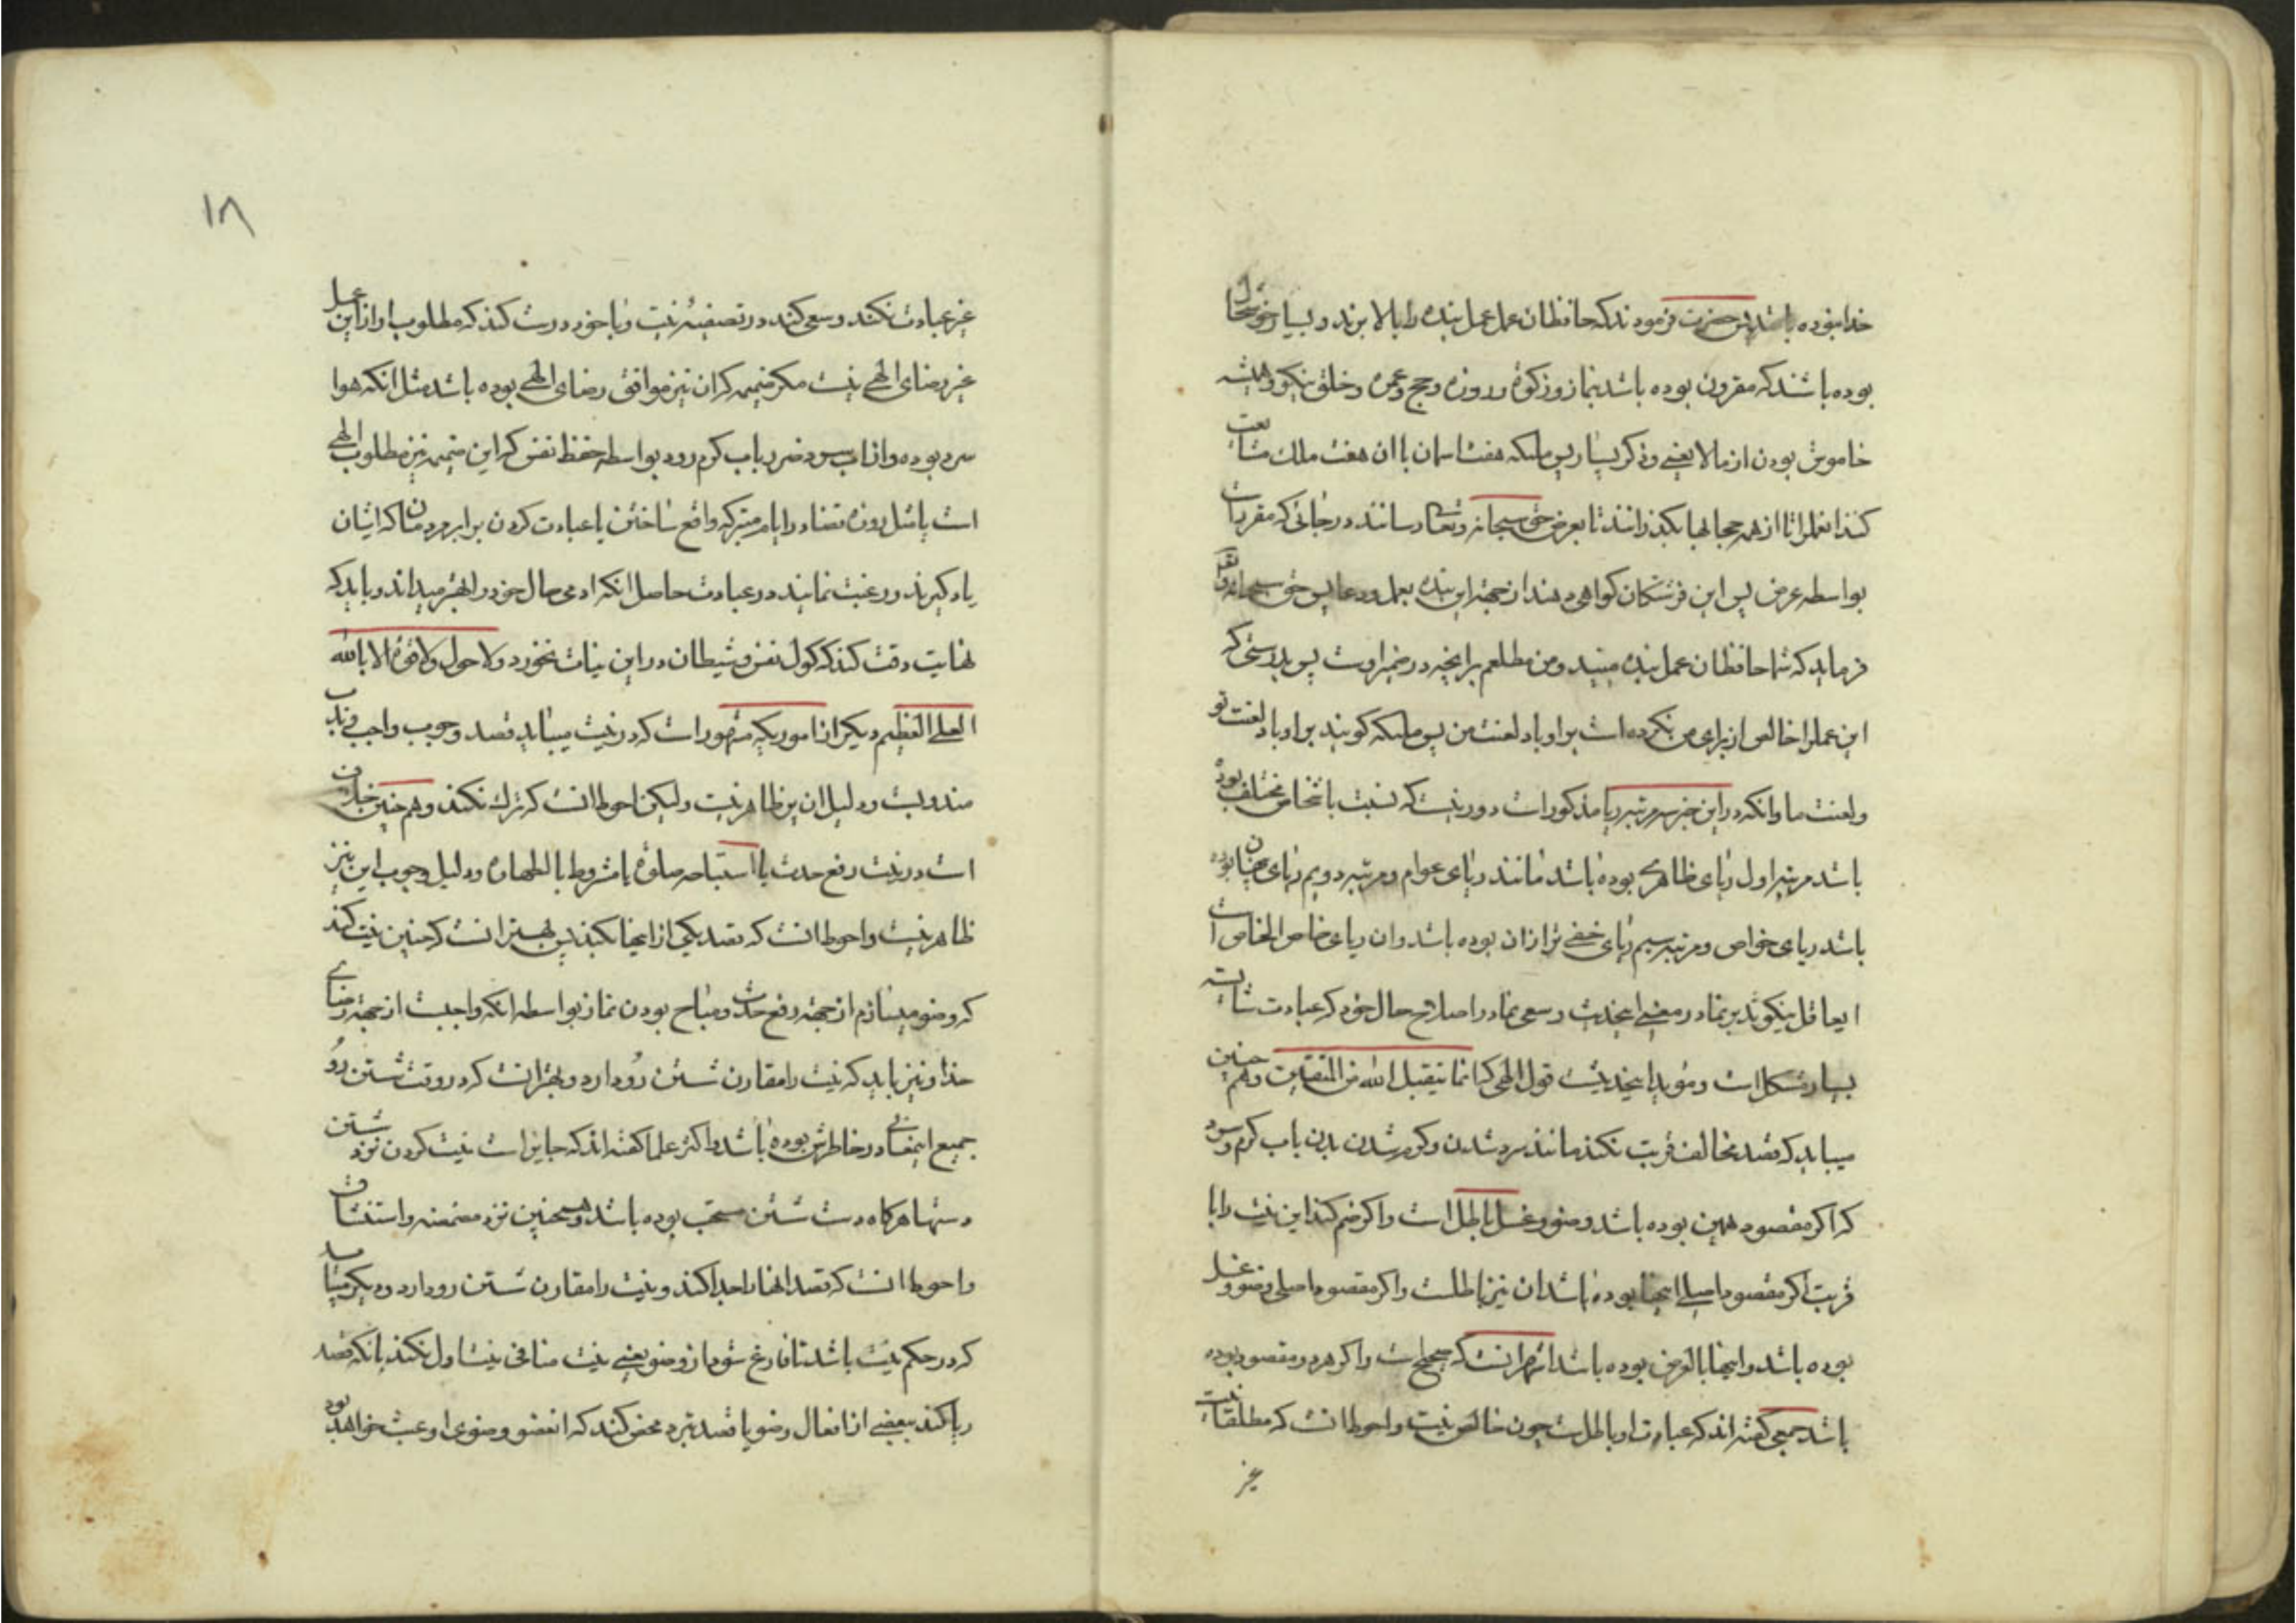 خدا بنوده باشد پس حضرت فرمودند که حافظان عمل عمل بنده را بالا برند و بسیار خوشحال
بوده باشند که مقرون بوده باشد بنماز و زکوة و روزه و حج و عمره و خلق نیکو و همیشه
خاموش بودن از مالا یعنی و ذکر بسیار پس ملئکه هفت اسمان با ان هفت ملک متابعت
کنند انعمل را تا از همه حجابها بکذرانند تا بعرض حق سبحانه و تعالی رسانند در جائی که مقرر است
بواسطه عرض پس این فرشتکان کواهی دهند از جهة این بنده بعمل و دعا پس حق سبحانه و تعالی
فرماید که شما حافظان عمل بنده منید و من مطلعم بر انچه در ضمیر اوست پس بدرستی که
این عمل را خالص از برای من نکرده است بر او باد لعنت من پس ملئکه کویند بر او باد لعنت تو
و لعنت ما و انکه در این خبر سه مرتبه ریا مذکور است دور نیست که نسبت باشخاص مختلف بوده
باشد مرتبه اول ریای ظاهری بوده باشد مانند ریای عوام و مرتبه دویم ریای پنهان بوده
باشد ریای خواص و مرتبه سیم ریای خفی تر از ان بوده باشد و ان ریای خاص الخاص است
ایعاقل نیکو تدبر نما در معنی اینحدیث و سعی نما در اصلاح حال خود که عبادت شایسته
بسیار مشکل است و مؤید اینحدیث قول الهی که انما یتقبل الله من المتقین و هم چنین
میباید که قصد مخالف قربت نکند مانند سرد شدن و کرم شدن بدن باب کرم و سرد
که اکر مقصود همین بوده باشد وضو و غسل باطل است و اکر ضم کند این نیت را با
قربت اکر مقصود اصلی اینها بوده باشد ان نیز باطلست و اکر مقصود اصلی وضو و غسل
بوده باشد و اینها بالعرض بوده باشد اشهر انست که صحیح است و اکر هر دو مقصود بوده
باشد جمعی کفته اند که عبادت او باطلست چون خالص نیست و احوط انست که مطلقا نیت
غیر
۱۸
غیر عبادت نکند و سعی کند در تصفیه نیت و با خود درست کند که مطلوب او از این عمل
غیر رضای الهی نیست مکر ضمیمه که ان نیز موافق رضای الهی بوده باشد مثل انکه هوا
سرد بوده و از اب سرد ضرر یابد باب کرم رود بواسطه حفظ نفس که این ضمیمه نیز مطلوب الهی
است یا مثل روزه قضاء در ایام متبرکه واقع ساختن یا عبادت کردن برابر مردمان تا که ایشان
یاد کیرند و رغبت نمایند در عبادت حاصل انکه ادمی حال خود را بهتر میداند و باید که
نهایت دقت کند که کول نفس و شیطان در این نیات نخورد و لا حول و لا قوة الا بالله
العلی العظیم دیکر از اموریکه مشهور است که در نیت میباید قصد وجوب واجب و ندب
مندوبست و دلیل ان بر ما ظاهر نیست ولیکن احوط انست که ترک نکند و هم چنین خلاف
است در نیت رفع حدث یا استباحه صلوة یا مشروط بالطهاره و دلیل وجوب این نیز
ظاهر نیست و احوط انست که قصد یکی از اینها بکند پس بهتر انست که چنین نیت کند
که وضو میسازم از جهة رفع حدث و مباح بودن نماز بواسطه انکه واجبست از جهة رضای
خدا و نیز باید که نیت را مقارن شستن رو دارد و بهتر انست که در وقت شستن رو
جمیع اینمعانی در خاطرش بوده باشد و اکثر علما کفته اند که جایز است نیت کردن نزد شستن
دستها هرکاه دست شستن مستحب بوده باشد و همچنین نزد مضمضه و استنشاق
و احوط انست که قصد انها را جدا کند و نیت را مقارن شستن رو دارد و دیکر میباید
که در حکم نیت باشد تا فارغ شود از وضو یعنی نیت منافی نیت اول نکند بانکه قصد
ریا کند ببعضی از افعال وضو یا قصد تبرد محض کند که انعضو وضوی او عبث خواهد بود